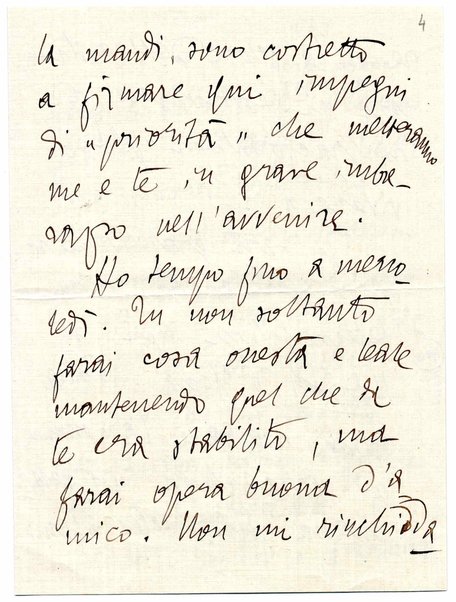 4
la mandi, sono costretto
a firmare qui impegni
di "priorità" che metteranno
me e te in grave imba-
razzo nell'avvenire.
Ho tempo fino a merco-
ledì. Tu non soltanto
farai cosa onesta e leale
mantenendo quel che da
te era stabilito, ma
farai opera buona d'a
mico. Non mi